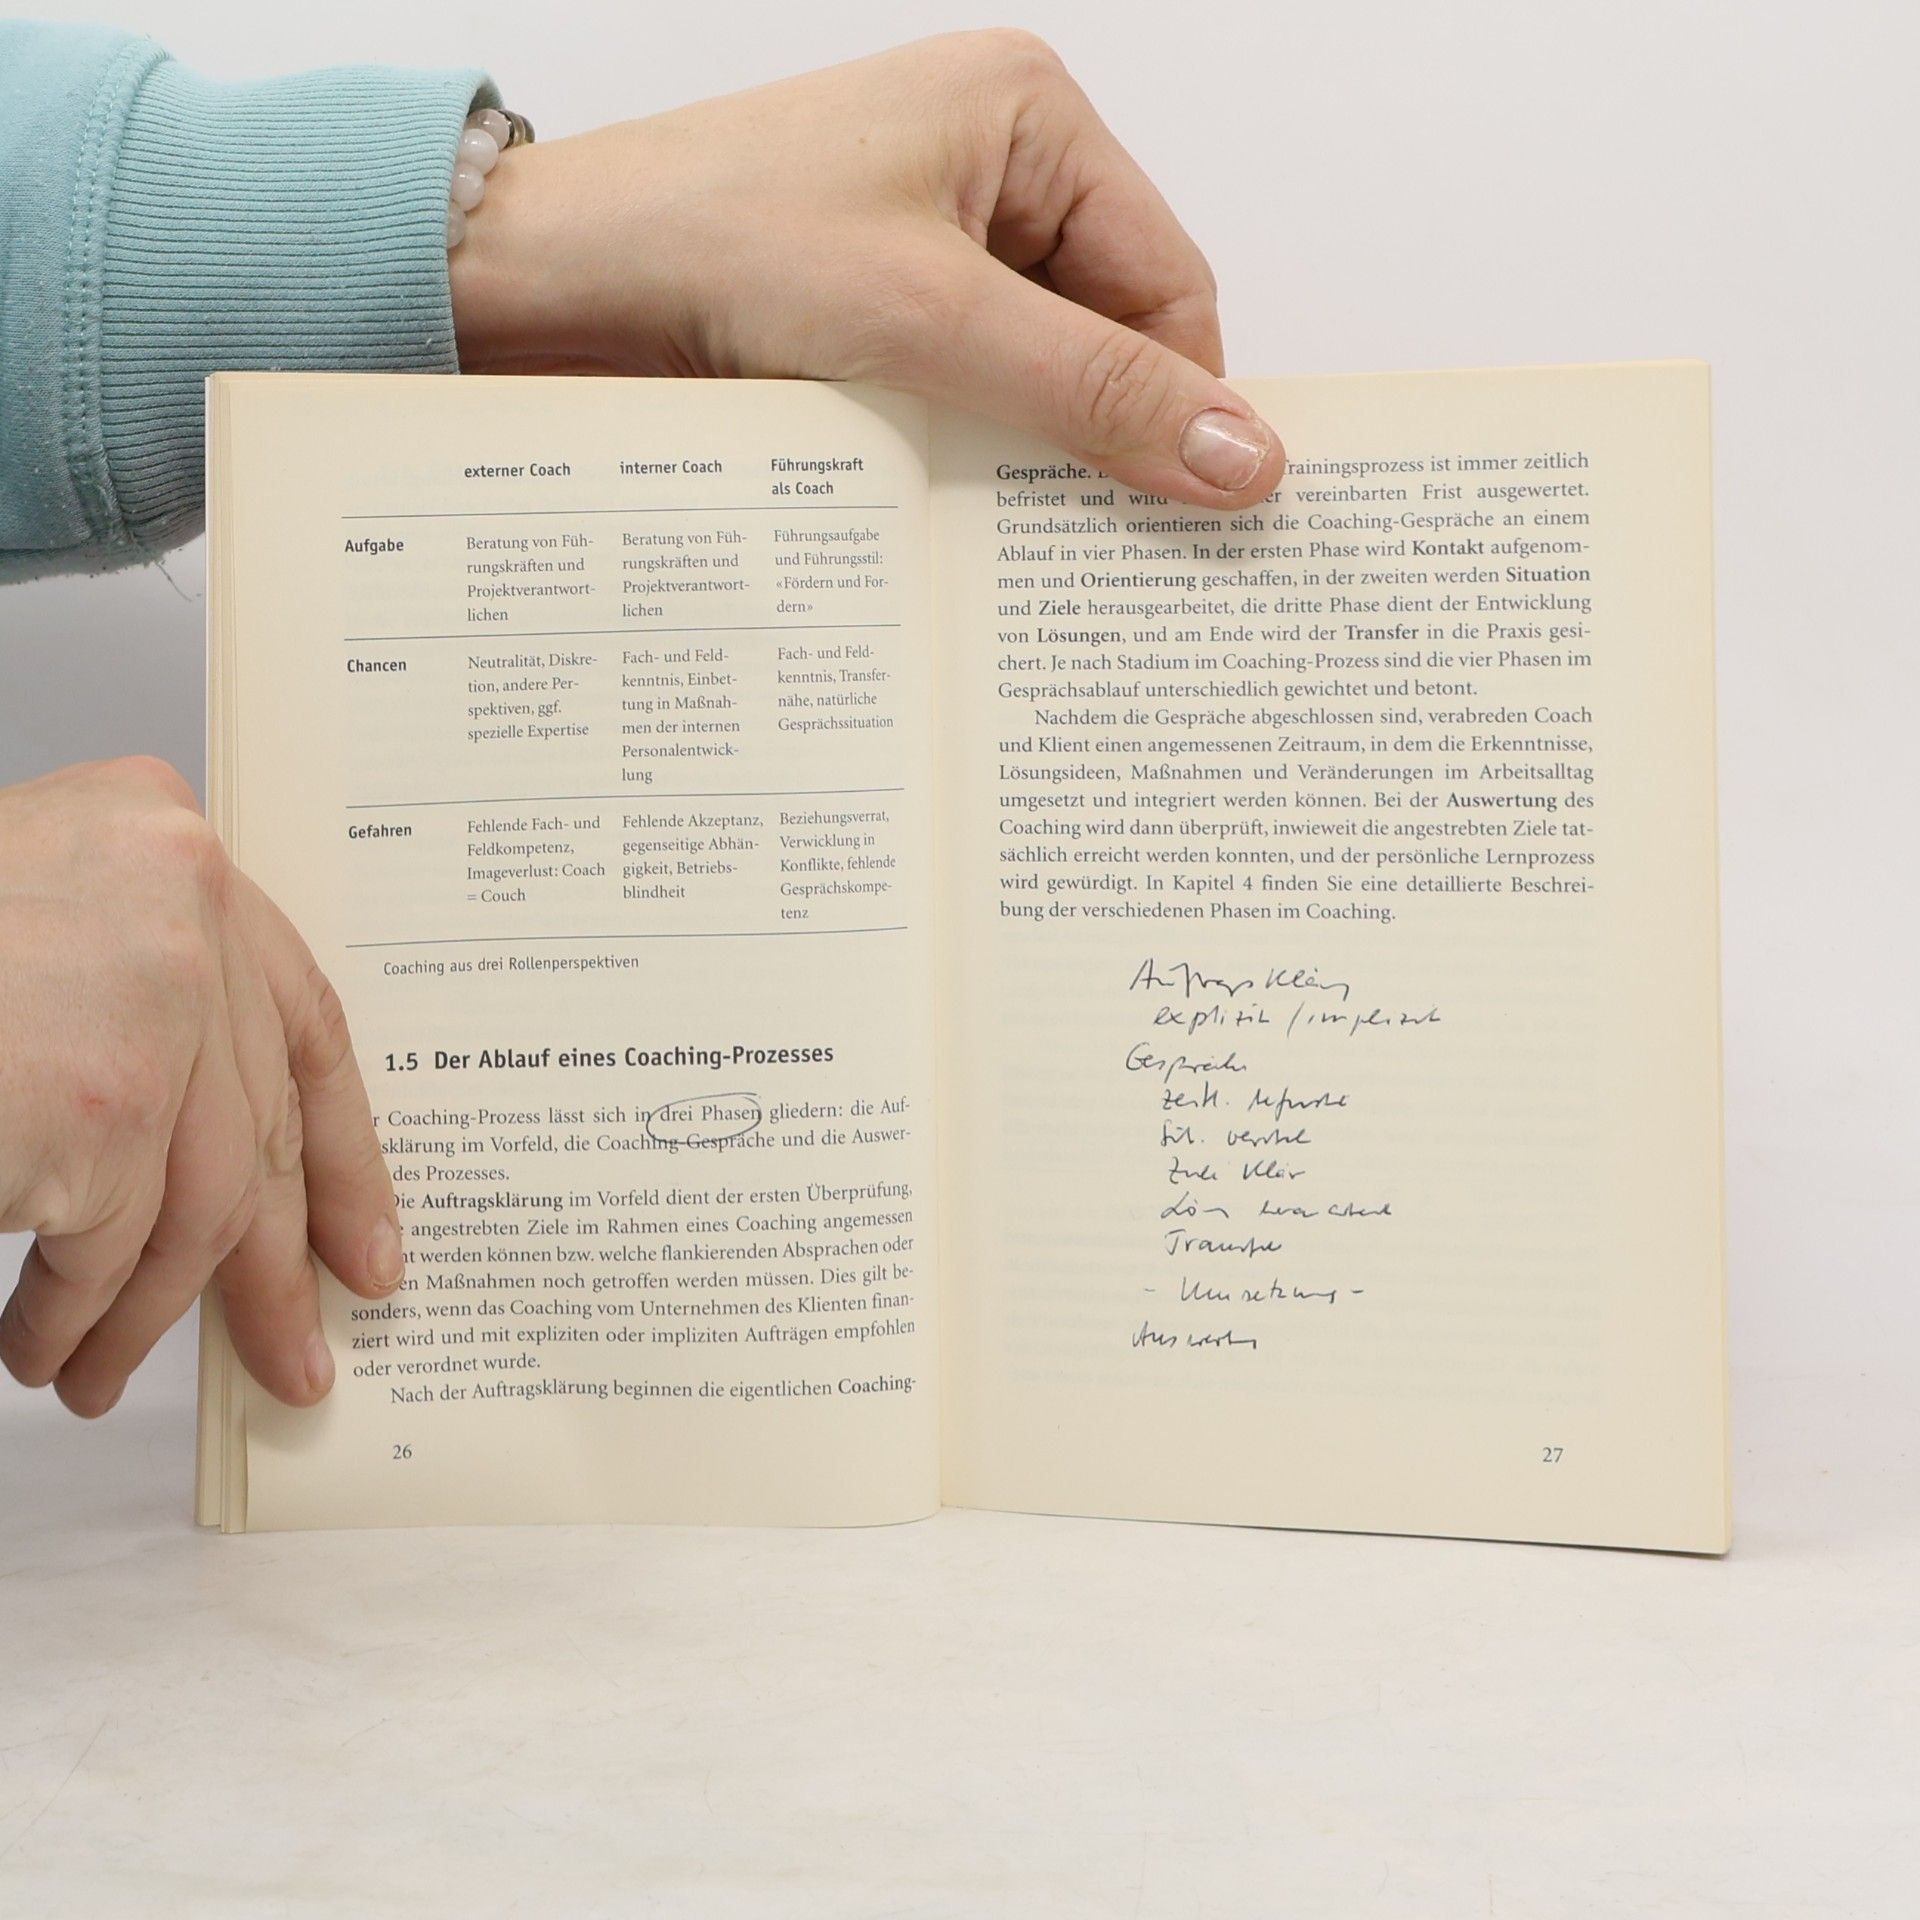 externer Coach interner Coach Führungskraft
als Coach
Aufgabe Beratung von Füh- Beratung von Füh- Führungsaufgabe
rungskräften und rungskräften und und Führungsstil:
Projektverantwort- Projektverantwort- «Fördern und For-
lichen lichen dern»
Chancen Neutralität, Diskre- Fach- und Feld- Fach- und Feld-
tion, andere Per- kenntnis, Einbet- kenntnis, Transfer-
spektiven, ggf. tung in Maßnah- nähe, natürliche
spezielle Expertise men der internen Gesprächssituation
Personalentwick-
lung
Gefahren Fehlende Fach- und Fehlende Akzeptanz, Beziehungsverrat,
Feldkompetenz, gegenseitige Abhän- Verwicklung in
Imageverlust: Coach gigkeit, Betriebs- Konflikte, fehlende
= Couch blindheit Gesprächskompe-
tenz
Coaching aus drei Rollenperspektiven
1.5 Der Ablauf eines Coaching-Prozesses
r Coaching-Prozess lässt sich in drei Phasen gliedern: die Auf-
sklärung im Vorfeld, die Coaching-Gespräche und die Auswer-
des Prozesses.
Die Auftragsklärung im Vorfeld dient der ersten Überprüfung,
angestrebten Ziele im Rahmen eines Coaching angemessen
ht werden können bzw. welche flankierenden Absprachen oder
en Maßnahmen noch getroffen werden müssen. Dies gilt be-
sonders, wenn das Coaching vom Unternehmen des Klienten finan-
ziert wird und mit expliziten oder impliziten Aufträgen empfohlen
oder verordnet wurde.
Nach der Auftragsklärung beginnen die eigentlichen Coaching-
26
Gespräche. Trainingsprozess ist immer zeitlich
befristet und wird vereinbarten Frist ausgewertet.
Grundsätzlich orientieren sich die Coaching-Gespräche an einem
Ablauf in vier Phasen. In der ersten Phase wird Kontakt aufgenom-
men und Orientierung geschaffen, in der zweiten werden Situation
und Ziele herausgearbeitet, die dritte Phase dient der Entwicklung
von Lösungen, und am Ende wird der Transfer in die Praxis gesi-
chert. Je nach Stadium im Coaching-Prozess sind die vier Phasen im
Gesprächsablauf unterschiedlich gewichtet und betont.
Nachdem die Gespräche abgeschlossen sind, verabreden Coach
und Klient einen angemessenen Zeitraum, in dem die Erkenntnisse,
Lösungsideen, Maßnahmen und Veränderungen im Arbeitsalltag
umgesetzt und integriert werden können. Bei der Auswertung des
Coaching wird dann überprüft, inwieweit die angestrebten Ziele tat-
sächlich erreicht werden konnten, und der persönliche Lernprozess
wird gewürdigt. In Kapitel 4 finden Sie eine detaillierte Beschrei-
bung der verschiedenen Phasen im Coaching.
Auftragsklärung
explizit / implizit
Gespräche
zeitl.
Transfer
- Umsetzung -
Auswertung
27